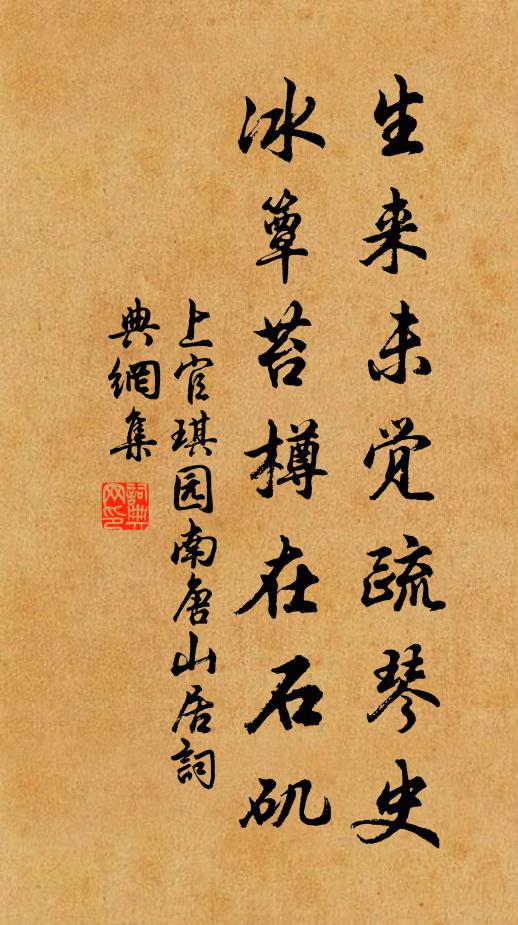 生来未觉疏琴史
冰簟苔樽在石矶
上官琪园南唐山居詞
典網集
詞典
网印